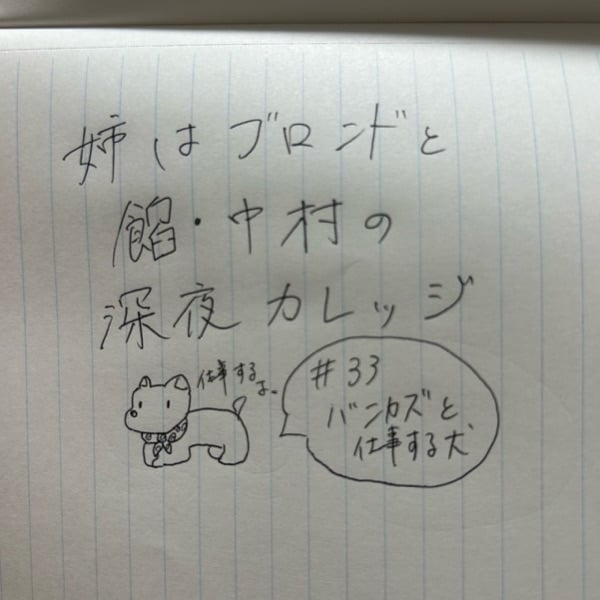 姉はブロンドと
餡・中村の
深夜カレッジ
仕事する
よ。
#33
バンカズと
仕事する犬